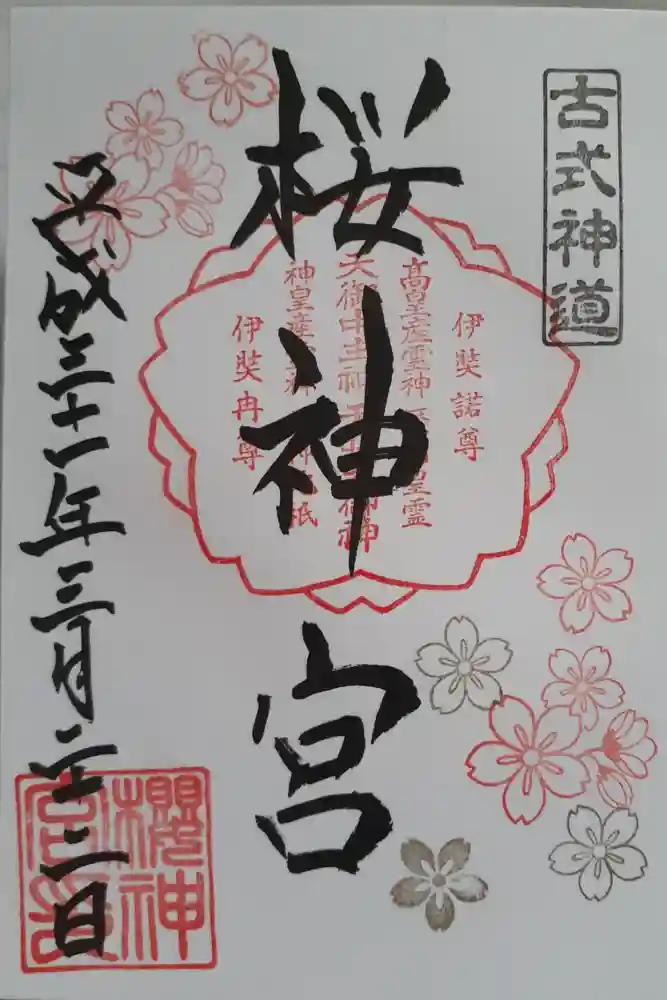 古式神道
伊奘諾尊
高皇産霊神 皇霊
天御中主神 御神
神皇産霊神 祇
伊奘冉尊
桜神宮
平成三十一年三月二十二日
櫻神宮